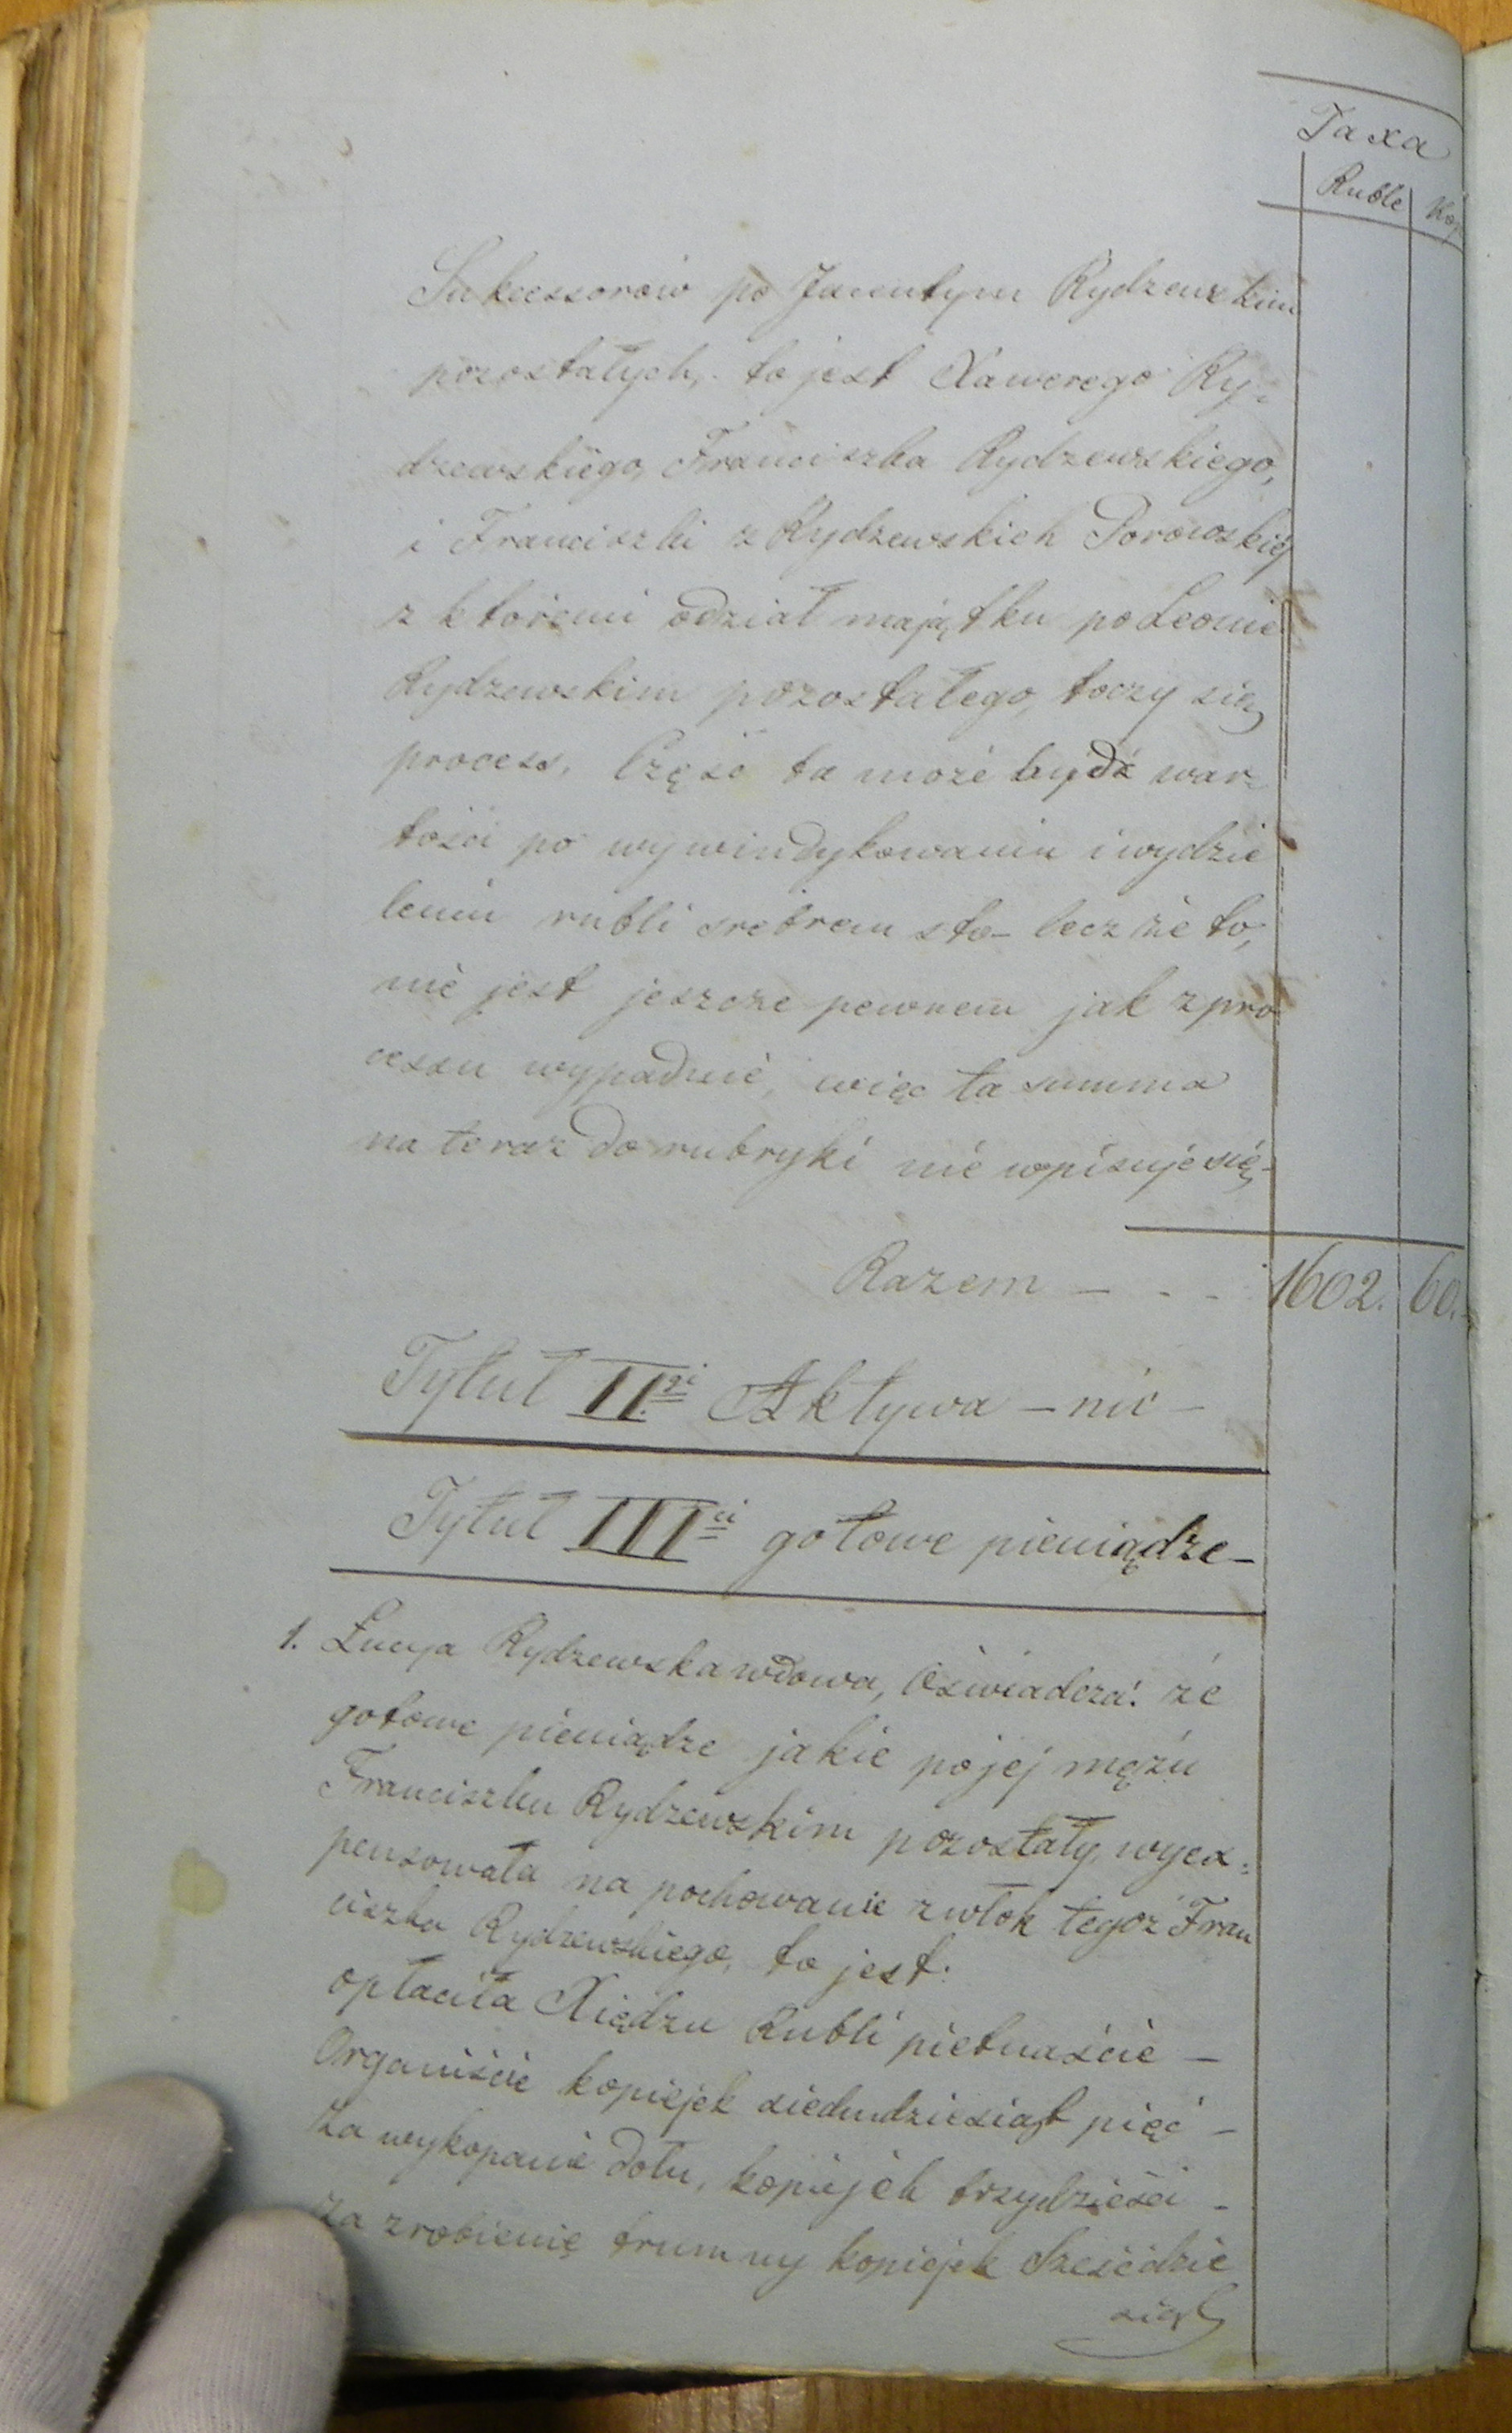 Taxa
Ruble Kop
Sukcessorów po Jacentym Rydzewskim
pozostałych, to jest Xawerego Ry-
dzewskiego, Franciszka Rydzewskiego,
i Franciszki z Rydzewskich Porowskiéj
z któremi odział majątku po Leonie
Rydzewskim pozostałego, toczy się
process. Część ta może bydź war-
tości po wywindykowaniu i wydzie
leniu rubli srebrem sto – lecz że to,
nie jest jeszcze pewnem jak z pro
cessu wypadnie, więc ta summa
na teraz do rubryki nie wpisuje się –
Razem – - - 1602. 60.
Tytuł II.gi Aktywa – nic –
Tytuł IIIci gotowe pieniądze –
1. Łucya Rydzewska wdowa, Oświadcza: że
gotowe pieniądze jakie po jej mężu
Franciszku Rydzewskim pozostały, wyex=
pensowała na pochowanie zwłok tegoż Fran
ciszka Rydzewskiego, to jest:
opłaciła Xiędzu Rubli pietnaście –
Organiście kopiejek siedmdziesiąt pięć –
Za wykopanie dołu, kopiejek trzydzieści –
Za zrobienie trumny kopiejek Sześćdzie
siąt